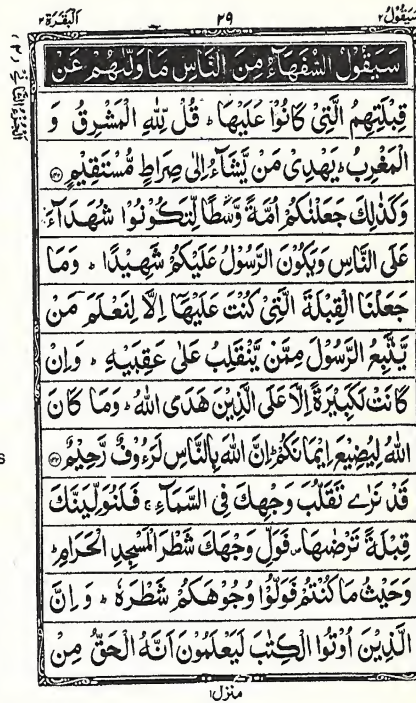 سيقول ٢ ٢٩ البقرة ٢
سَيَقُوْلُ السُّفَهَآءُ مِنَ النَّاسِ مَا وَلّٰىهُمْ عَنْ
قِبْلَتِهِمُ الَّتِيْ كَانُوْا عَلَيْهَا ؕ قُلْ لِّلّٰهِ الْمَشْرِقُ وَ
الْمَغْرِبُ ؕ يَهْدِيْ مَنْ يَّشَآءُ اِلٰى صِرَاطٍ مُّسْتَقِيْمٍ ۝۱۴۲
وَكَذٰلِكَ جَعَلْنٰكُمْ اُمَّةً وَّسَطًا لِّتَكُوْنُوْا شُهَدَآءَ
عَلَى النَّاسِ وَيَكُوْنَ الرَّسُوْلُ عَلَيْكُمْ شَهِيْدًا ؕ وَمَا
جَعَلْنَا الْقِبْلَةَ الَّتِيْ كُنْتَ عَلَيْهَا اِلَّا لِنَعْلَمَ مَنْ
يَّتَّبِعُ الرَّسُوْلَ مِمَّنْ يَّنْقَلِبُ عَلٰى عَقِبَيْهِ ؕ وَاِنْ
كَانَتْ لَكَبِيْرَةً اِلَّا عَلَى الَّذِيْنَ هَدَى اللّٰهُ ؕ وَمَا كَانَ
اللّٰهُ لِيُضِيْعَ اِيْمَانَكُمْ ؕ اِنَّ اللّٰهَ بِالنَّاسِ لَرَءُوْفٌ رَّحِيْمٌ ۝۱۴۳
قَدْ نَرٰى تَقَلُّبَ وَجْهِكَ فِي السَّمَآءِ ۚ فَلَنُوَلِّيَنَّكَ
قِبْلَةً تَرْضٰىهَا ۪ فَوَلِّ وَجْهَكَ شَطْرَ الْمَسْجِدِ الْحَرَامِ ؕ
وَحَيْثُ مَا كُنْتُمْ فَوَلُّوْا وُجُوْهَكُمْ شَطْرَهٗ ؕ وَاِنَّ
الَّذِيْنَ اُوْتُوا الْكِتٰبَ لَيَعْلَمُوْنَ اَنَّهُ الْحَقُّ مِنْ
منزل ۱
s